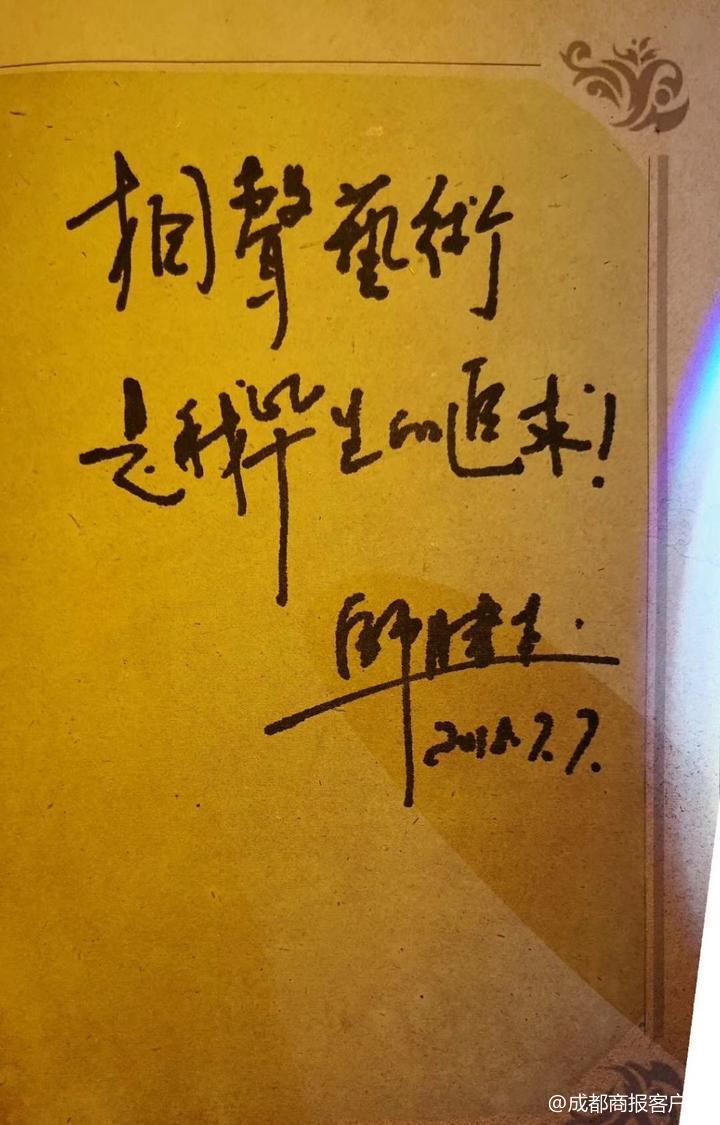 相聲藝術
是我毕生的追求!
師勝杰
2018.7.7.
@成都商报客户